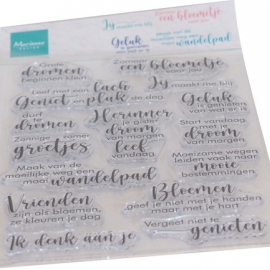 Marianne
een bloemetje
Jij maakt me blij
Geluk
wandelpad
Grote
dromen
beginnen klein
Zomaar
een bloemetje
voor jou
Leef met een lach
Jij maakt me blij
Geniet en pluk de dag
Geluk
is genieten
van het moment
Herinner
je gister
droom
van morgen
leef
vandaag
Durf te
dromen
Zonnige zomer
groetjes
Start vandaag
met je
droom
van morgen
Maak van de
moeilijke weg een
mooi wandelpad
Moeizame wegen
leiden vaak naar
mooie
bestemmingen
Vrienden
zijn als bloemen,
ze kleuren je dag
Bloemen
geef je niet met je handen
maar met je hart
Ik denk aan je
Vergeet niet te
genieten